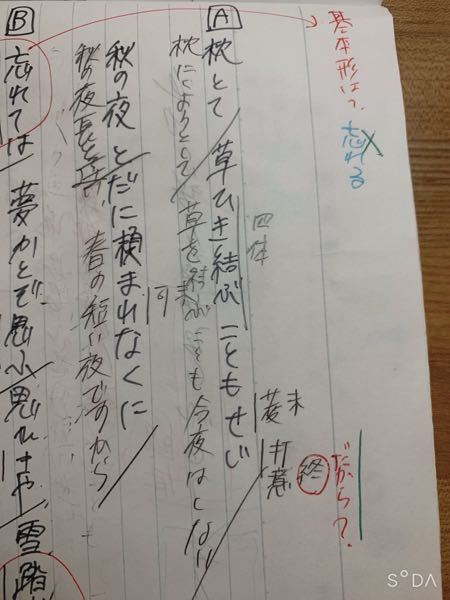 基本形は?
忘れる
だから?
終
未
打意
四体
A
枕とて 草ひき結ぶ こともせじ
枕にしようとして 草を結ぶことも今夜はしない
未
可
秋の夜 とだに頼まれなくに
秋の夜長と 春の短い夜ですから
B
忘れては 夢かとぞ思ふ 思ひきや 雪踏
S°DA